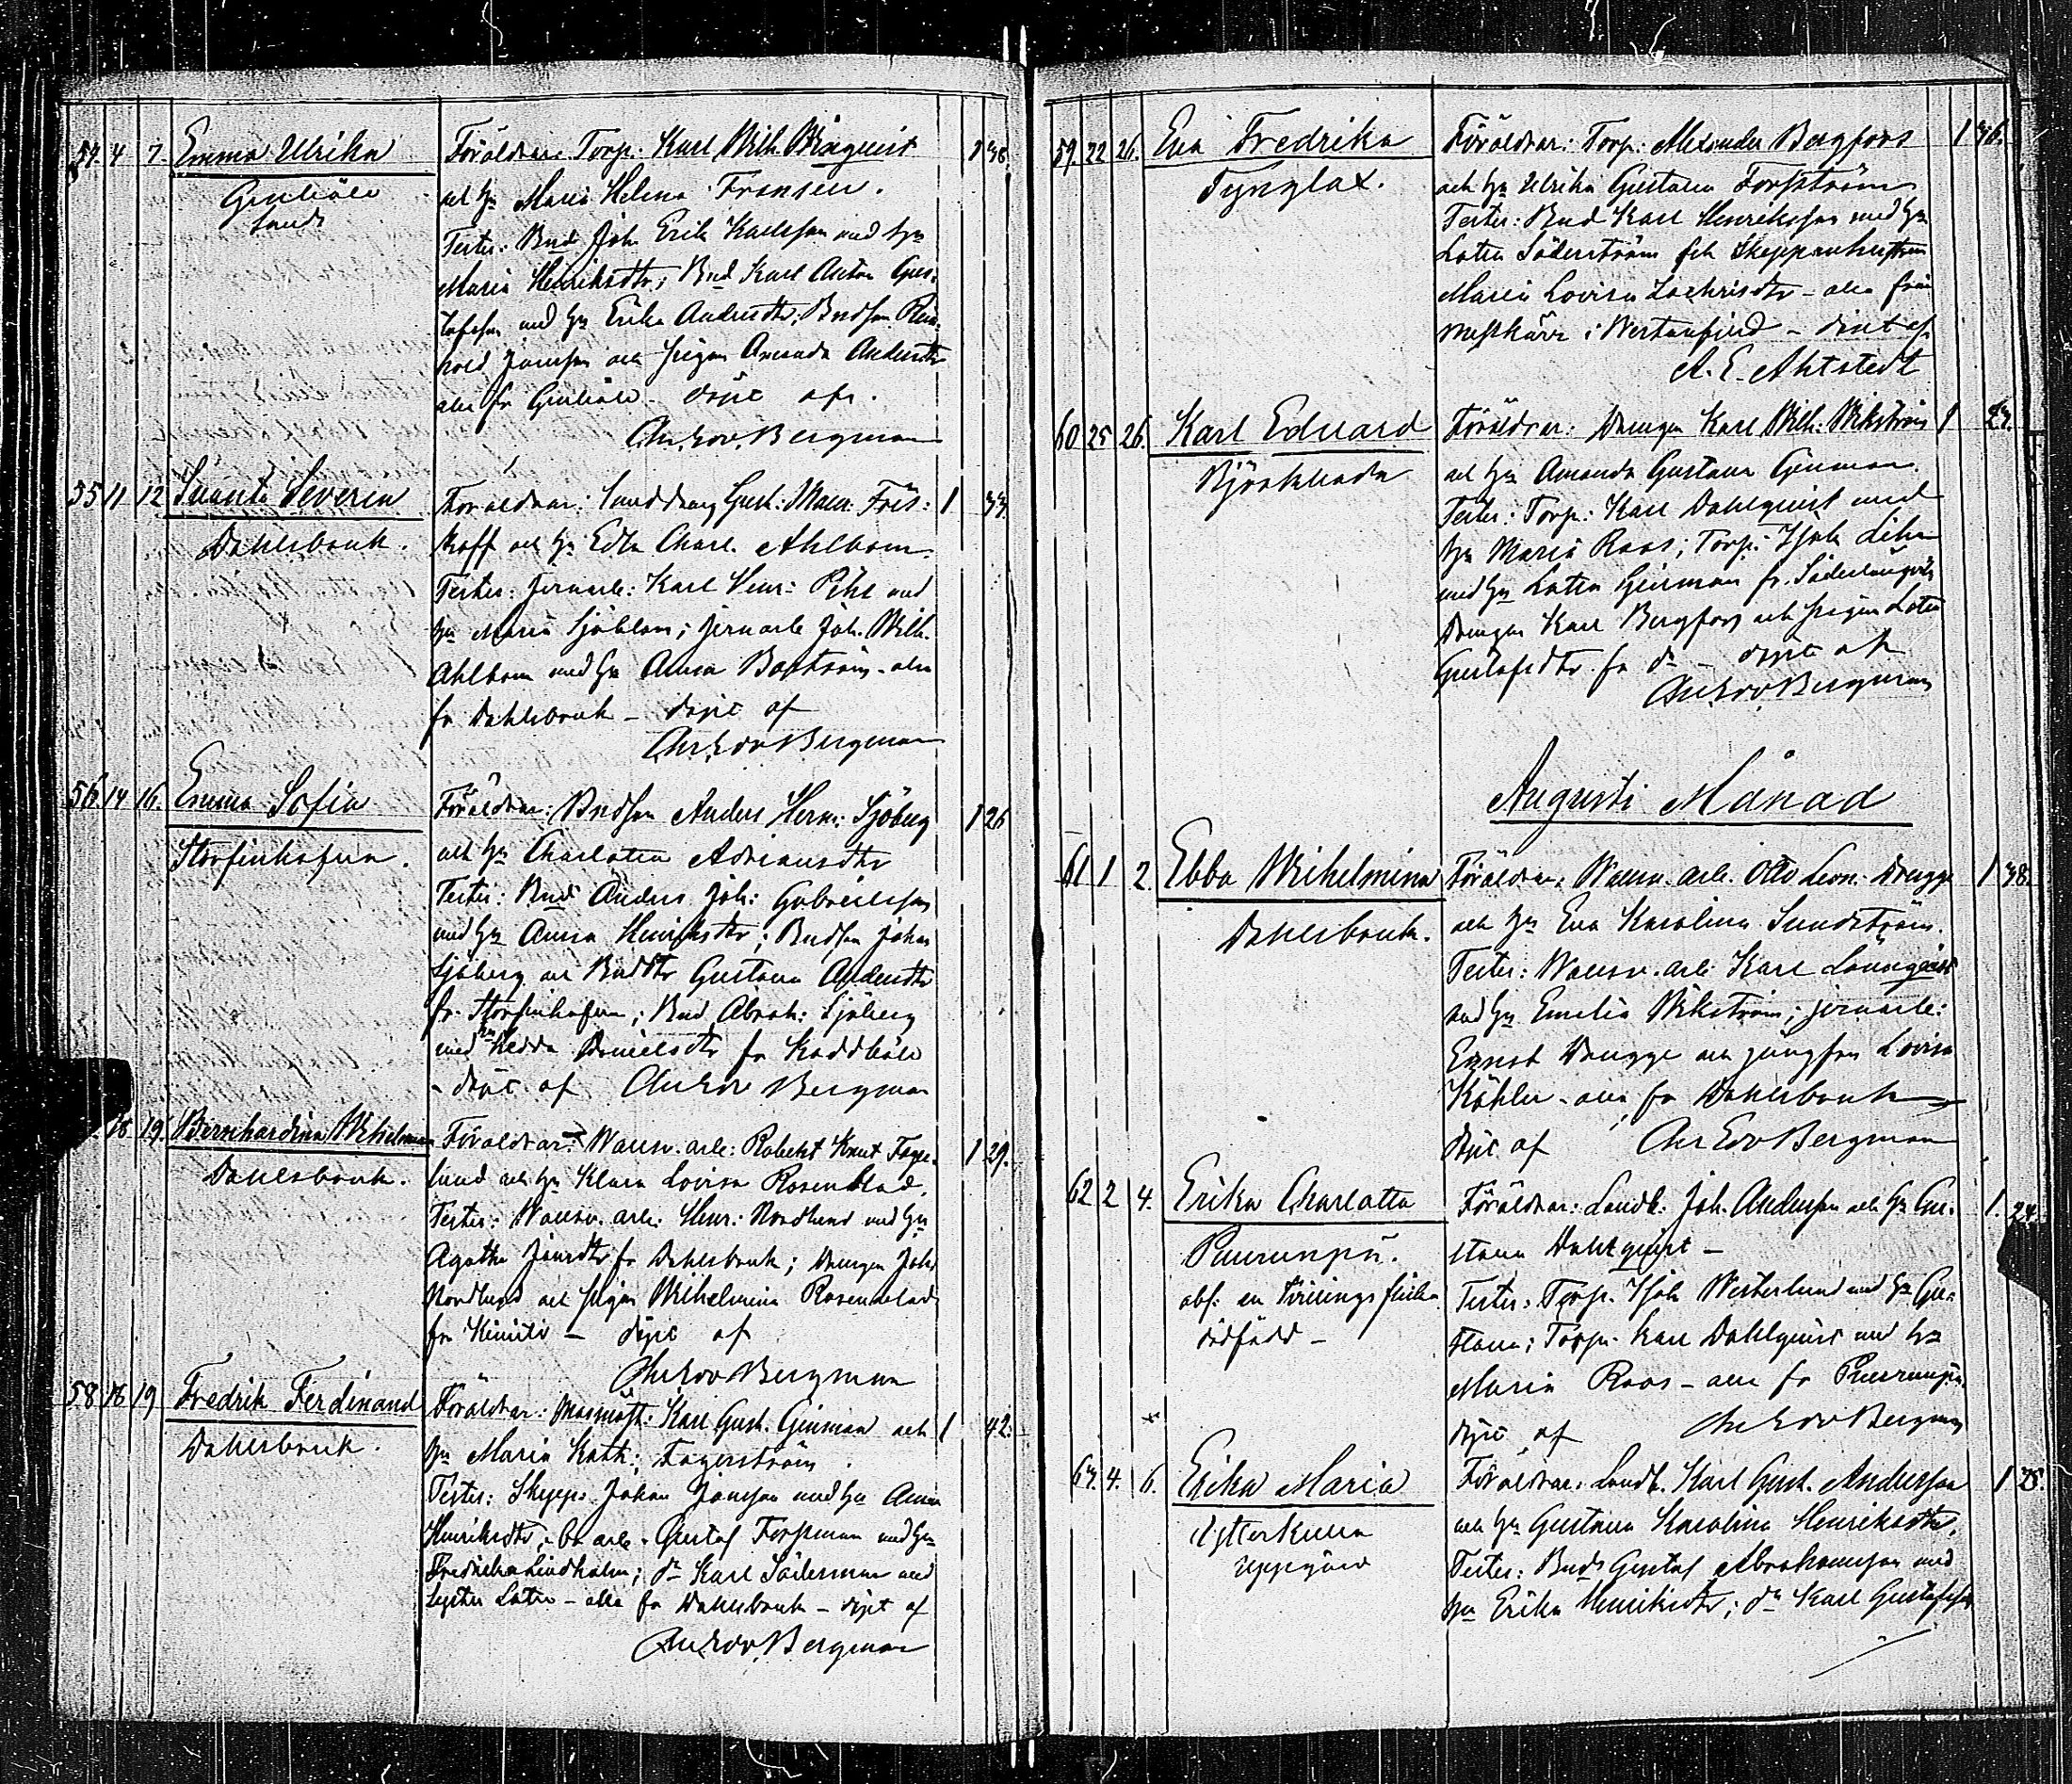 54. 4 7. Emma Ulrika
Föräldrar: Torp. Karl Wilh. 1 38
Sunds
och h:u Maria Helena Fransén.
Tester: Bnd Joh. Erik Karlsson med h:u
Maria Henriksdtr; Bnd Karl Anton Gus-
tafsson med h:u Erika Andersdtr; Bndson Rein-
hold Jansson och pigan Amanda Andersdtr
alla fr döpt af
And. Edv. Bergman
55 11 12 Severin
Dahlsbruk.
Föräldrar: Gust. 1 33
och h:u Edla Charl. Ahlbom.
Tester: jernarb: Karl Henr: Pihl med
h:u Maria Sjöblom; jernarb Joh. Wilh.
Ahlbom med h:u Anna - alla
fr Dahlsbruk - döpt af
And. Edv. Bergman
56. 14 16. Emma Sofia
Storfinhofva.
Föräldrar: Bndson Anders Herm: Sjöberg 1 26
och h:u Charlotta Adriansdtr
Tester: Bnd Anders Joh: Gabrielsson
med h:u Anna Henriksdtr; Bndson Johan
Sjöberg och Bnddtr Gustava Andersdtr
fr. Storfinhofva; Bnd Abrah: Sjöberg
med h:u Hedda Danielsdtr fr Kaddböle
- döpt af And. Edv. Bergman
18 19. Bernhardina Wilhelmina
Dahlsbruk.
Föräldrar: Walsv. arb: Robert Knut Fager- 1 29.
lund och h:u Klara Lovisa Rosenblad.
Tester: Walsv. arb: Henr: Nordlund med h:u
Agatha Jansdtr fr Dahlsbruk; Drengen Joh.
Nordlund och pigan Wilhelmina Rosenblad
fr Kimito - döpt af
And. Edv. Bergman
58 18 19 Fredrik Ferdinand
Dahlsbruk.
Föräldrar: Masmäst: Karl Gust. Ginman och 1 42.
h:u Maria Kath: Fagerström.
Tester: Skepp: Johan Jansson med h:u Anna
Henriksdtr; arb. Gustaf Forsman med h:u
Fredrika Lindholm; d:o Karl Söderman med
syster Lotta - alla fr Dahlsbruk - döpt af
And. Edv. Bergman
59. 22 26. Eva Fredrika
Tynglax.
Föräldrar: Torp: Alexander Bergfors 1 36.
och h:u Ulrika Gustava Forsström
Tester: Bnd Karl Henriksson med h:u
Lotta Söderström och Skepparhustrun
Maria Lovisa Zachrisdtr - alla från
i Westanfjerd - döpt af
A. E. Ahlstedt
60 25 26. Karl Edvard
Björkboda
Föräldrar: Drengen Karl Wilh: Wikström 1
och h:u Amanda Gustava Ginman.
Tester: Torp: Karl Dahlqvist med
h:u Maria Roos; Torp: Isak
med h:u Lotta Ginman fr.
Drengen Karl Bergfors och pigan Lotta
Gustafsdtr fr d:o - döpt af
And. Edv. Bergman
Augusti Månad
61 1 2. Ebba Wilhelmina
Dahlsbruk.
Föräldrar: Walsv. arb. Otto Leon. Drugge 1 38.
och h:u Eva Karolina Sundström.
Tester: Walsv. arb: Karl Lönnqvist
med h:u Emelia Wikström; jernarb:
Ernst Drugge och jungfru Lovisa
Köhler - alla fr Dahlsbruk -
döpt af And. Edv. Bergman
62 2 4. Erika Charlotta
obs: en tvillingsflicka
dödfödd -
Föräldrar: Landb: Joh. Andersson och h:u Gu- 1.
stava Dahlqvist -
Tester: Torp. Isak Westerlund med h:u Gu-
stava; Torp. Karl Dahlqvist med h:u
Maria Roos - alla fr
döpt af And. Edv. Bergman
63. 4. 6. Erika Maria
Ytterkulla
uppgård
Föräldrar: Landb. Karl Gust. Andersson 1 25.
och h:u Gustava Karolina Henriksdtr.
Tester: Bnd Gustaf Abrahamsson med
h:u Erika Henriksdtr; d:o Karl Gustafsson